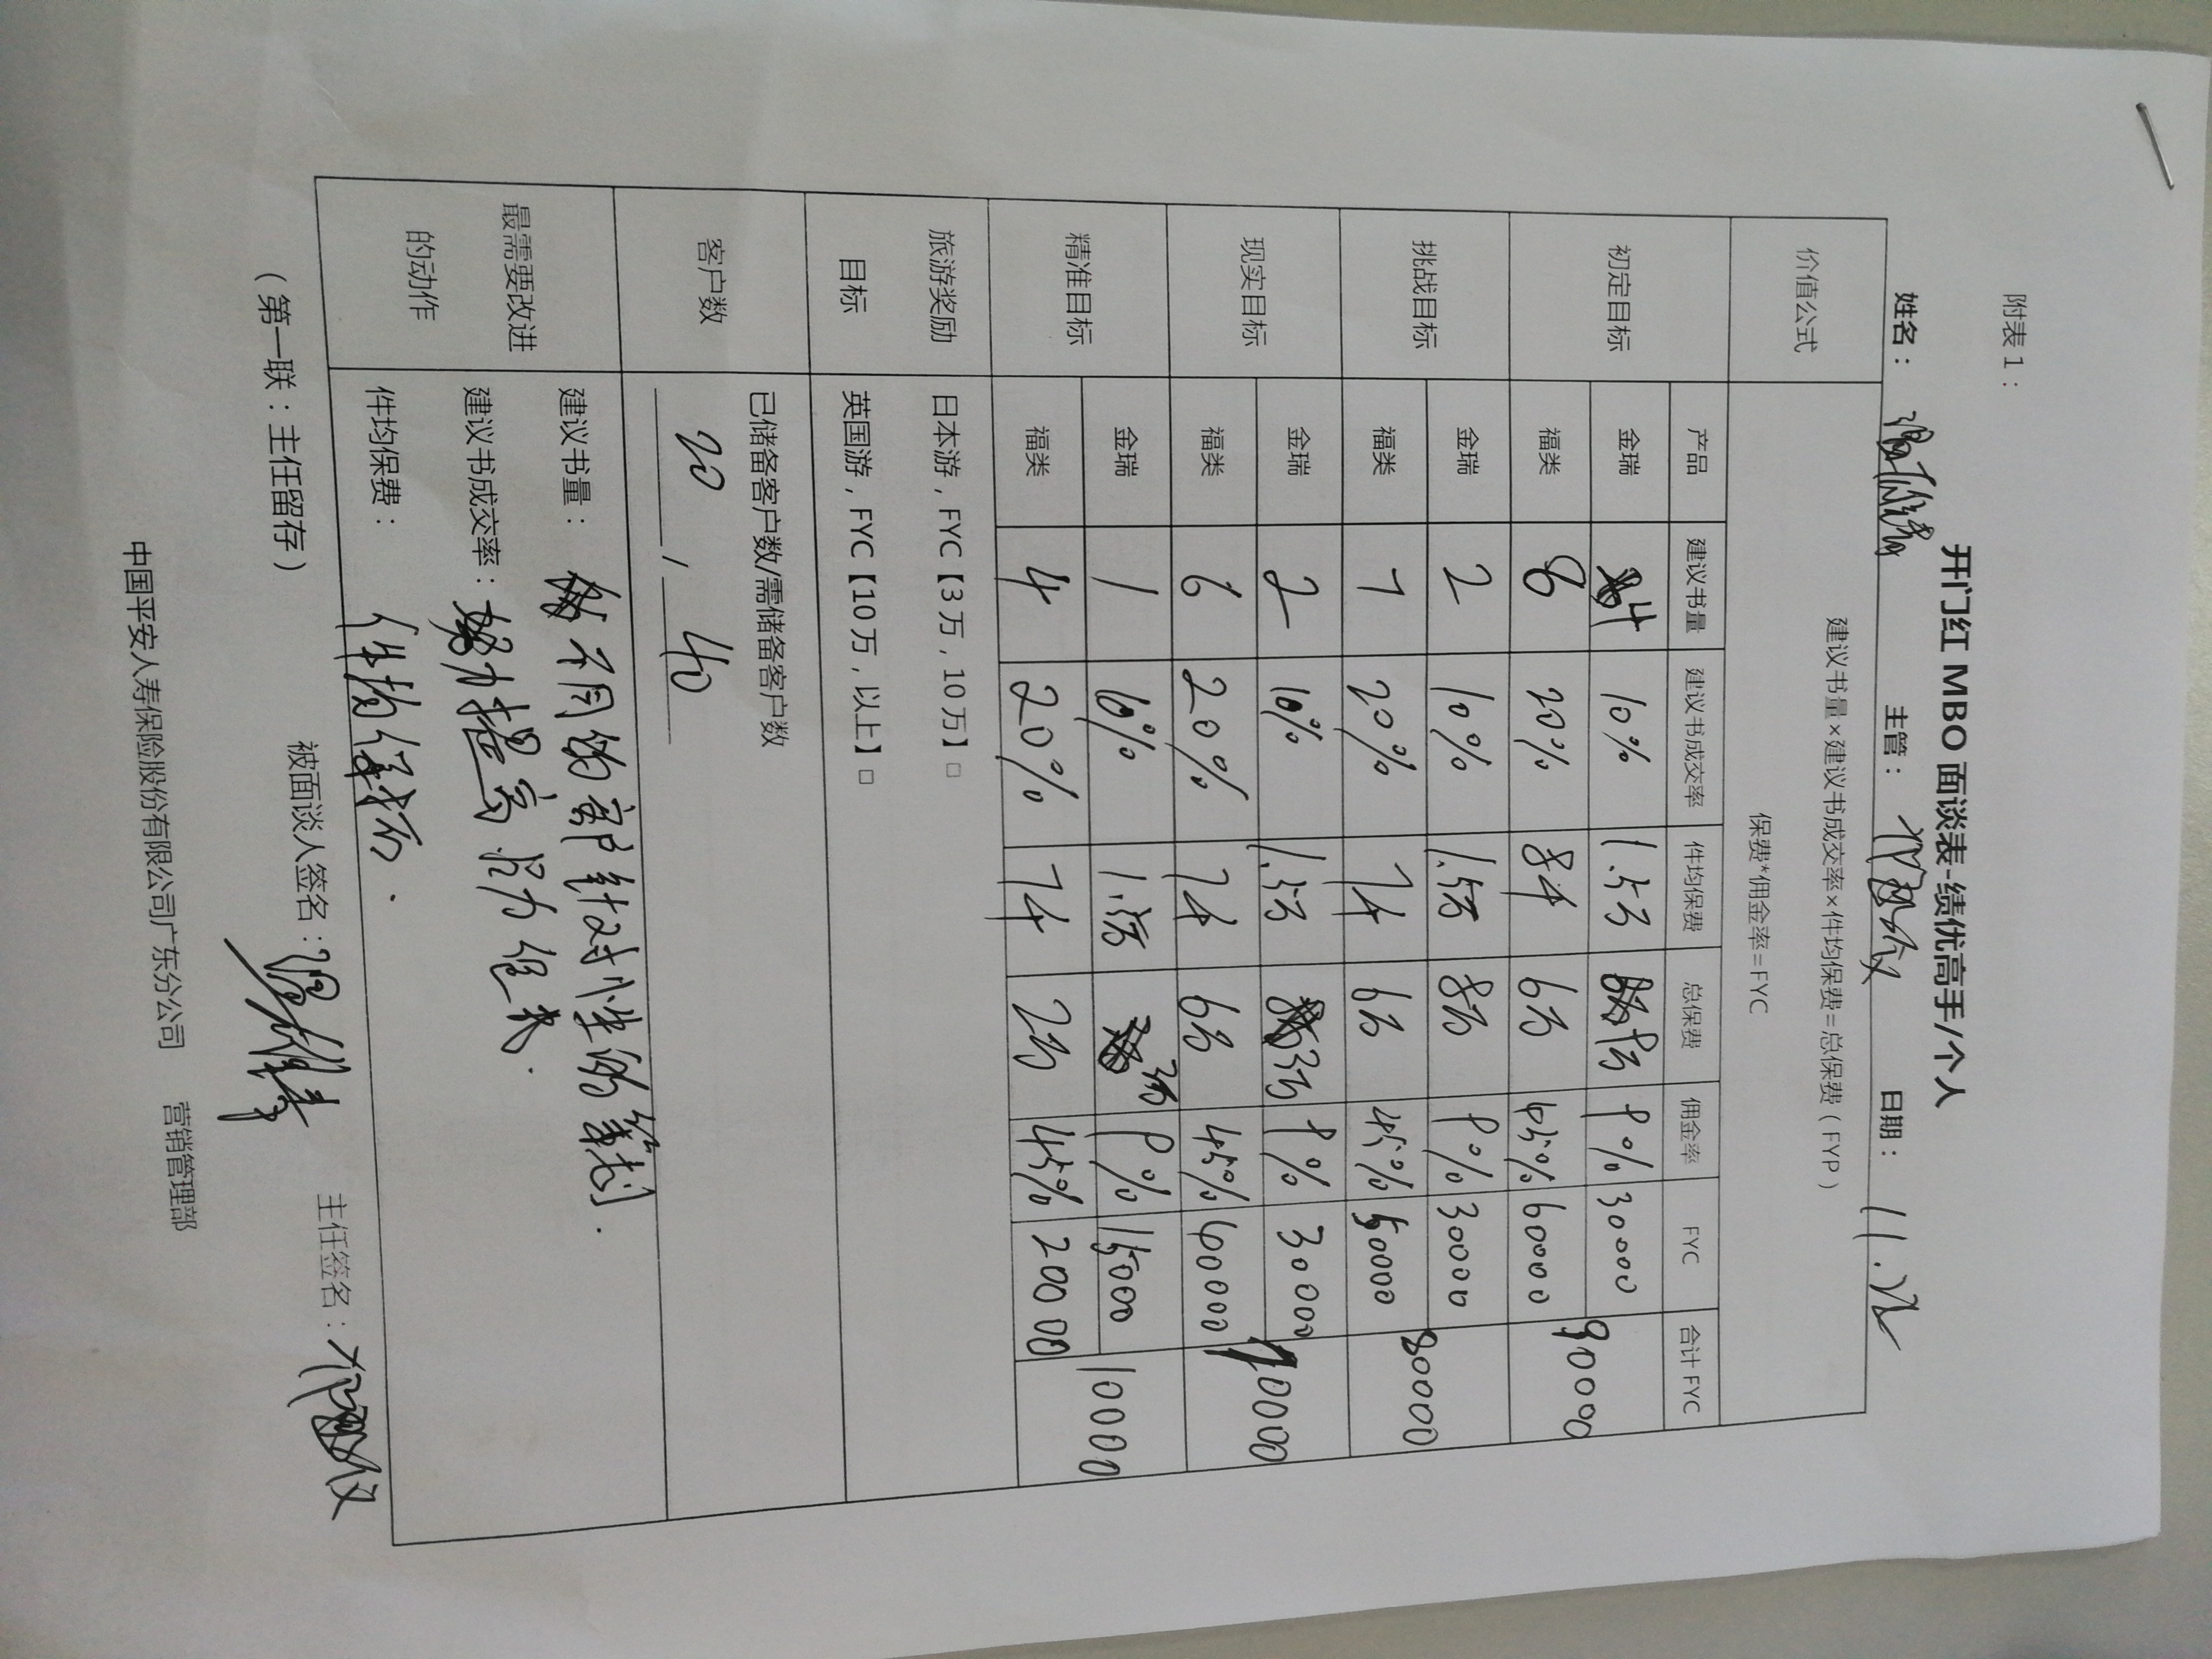 附表1：
开门红 MBO 面谈表-绩优高手/个人
姓名： 主管： 日期： 11.22
价值公式 建议书量×建议书成交率×件均保费=总保费（FYP）
保费*佣金率=FYC
产品 建议书量 建议书成交率 件均保费 总保费 佣金率 FYC 合计 FYC
初定目标 金瑞 4 10% 1.5万 9% 30000 90000
福类 8 20% 6万 45% 60000
挑战目标 金瑞 2 10% 1.5万 8万 9% 30000 80000
福类 7 20% 6万 45% 50000
现实目标 金瑞 2 10% 1.5万 3万 9% 30000
福类 6 20% 6万 45%
精准目标 金瑞 1 10% 1.5万 9% 15000 10000
福类 4 20% 2万 45% 20000
旅游奖励 日本游，FYC【3万，10万】□
目标 英国游，FYC【10万，以上】□
客户数 已储备客户数/需储备客户数
20 , 40
最需要改进 建议书量： 不同的客户针对性的
的动作 建议书成交率： 提高
件均保费： 件均
（第一联：主任留存） 被面谈人签名： 主任签名：
中国平安人寿保险股份有限公司广东分公司 营销管理部